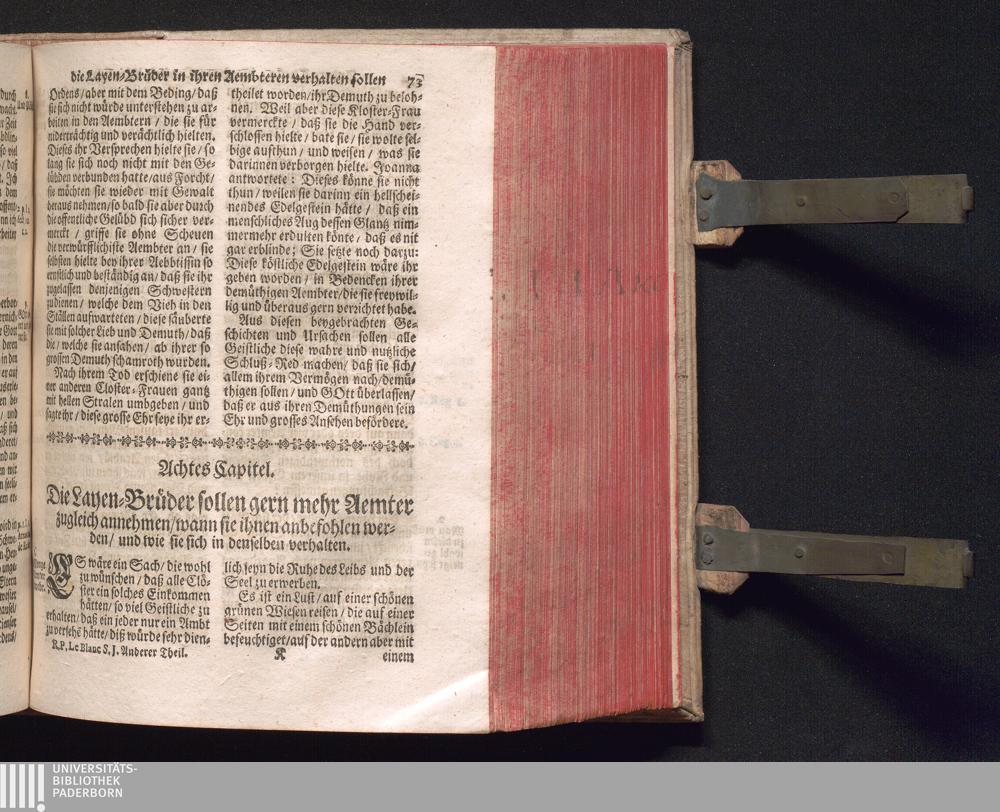 die Layen-Brüder in ihren Aembteren verhalten sollen 73
Ordens/ aber mit dem Beding/ daß
sie sich nicht würde unterstehen zu ar-
beiten in den Aembtern / die sie für
niderträchtig und verächtlich hielten.
Dieses ihr Versprechen hielte sie/ so
lang sie sich noch nicht mit den Ge-
lübden verbunden hatte/ aus Forcht/
sie möchten sie wieder mit Gewalt
heraus nehmen/ so bald sie aber durch
die offentliche Gelübd sich sicher ver-
merckt / griffe sie ohne Scheuen
die verwürfflichiste Aembter an / sie
selbsten hielte bey ihrer Aebbtissin so
ernstlich und beständig an/ daß sie ihr
zugelassen denjenigen Schwestern
zudienen / welche dem Vieh in den
Ställen aufwarteten / diese säuberte
sie mit solcher Lieb und Demuth/ daß
die/ welche sie ansahen/ ab ihrer so
grossen Demuth schamroth wurden.
Nach ihrem Tod erschiene sie ei-
ner anderen Closter-Frauen gantz
mit hellen Stralen umbgeben / und
sagte ihr / diese grosse Ehr seye ihr er-
theilet worden/ ihr Demuth zu beloh-
nen. Weil aber diese Kloster-Frau
vermerckte / daß sie die Hand ver-
schlossen hielte/ bate sie/ sie wolte sel-
bige aufthun/ und weisen/ was sie
darinnen verborgen hielte. Joanna
antwortete: Dieses könne sie nicht
thun/ weilen sie darinn ein hellschei-
nendes Edelgestein hätte/ daß ein
menschliches Aug dessen Glantz nim-
mermehr erdulten könte/ daß es nit
gar erblinde; Sie setzte noch darzu:
Diese köstliche Edelgestein wäre ihr
geben worden/ in Bedencken ihrer
demüthigen Aembter/ die sie freywil-
lig und überaus gern verzichtet habe.
Aus diesen beygebrachten Ge-
schichten und Ursachen sollen alle
Geistliche diese wahre und nutzliche
Schluß-Red machen/ daß sie sich/
allem ihrem Vermögen nach/ demü-
thigen sollen/ und GOtt überlassen/
daß er aus ihren Demüthungen sein
Ehr und grosses Ansehen befördere.
Achtes Capitel.
Die Layen-Brüder sollen gern mehr Aemter
zugleich annehmen/ wann sie ihnen anbefohlen wer-
den/ und wie sie sich in denselben verhalten.
ES wäre ein Sach/ die wohl
zu wünschen/ daß alle Clö-
ster ein solches Einkommen
hätten/ so viel Geistliche zu
erhalten/ daß ein jeder nur ein Ambt
zu versehē hätte/ diß würde sehr dien-
lich seyn die Ruhe des Leibs und der
Seel zu erwerben.
Es ist ein Lust/ auf einer schönen
grünen Wiesen reisen/ die auf einer
Seiten mit einem schönen Bächlein
befeuchtiget/ auf der andern aber mit
R. P. Le Blanc S. J. Anderer Theil. K einem
UNIVERSITÄTS-
BIBLIOTHEK
PADERBORN